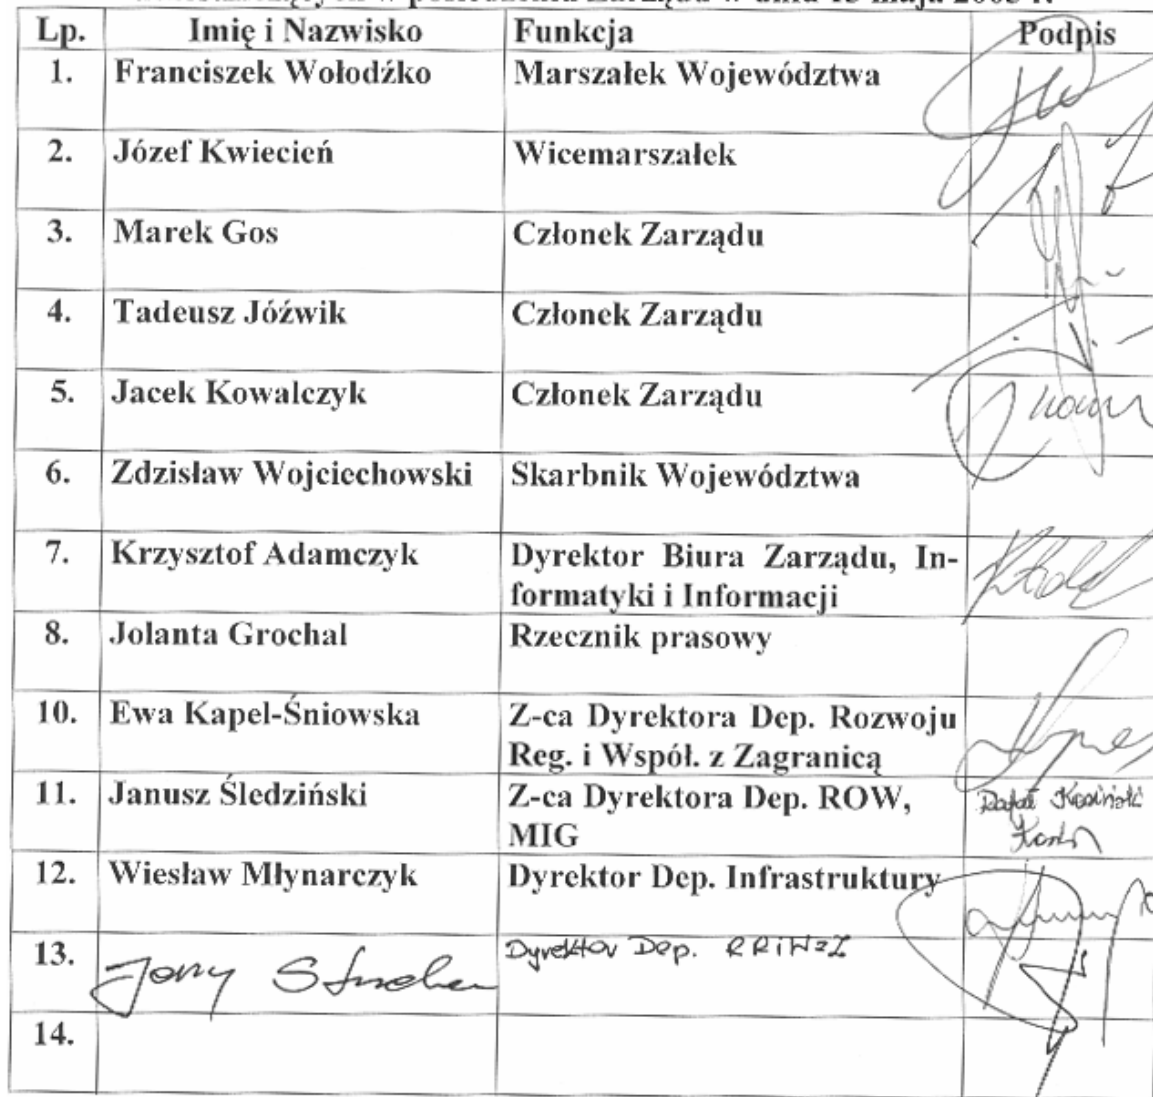 w posiedzeniu Zarządu w dniu 13 maja 2003 r.
Lp. Imię i Nazwisko Funkcja Podpis
1. Franciszek Wołodźko Marszałek Województwa
2. Józef Kwiecień Wicemarszałek
3. Marek Gos Członek Zarządu
4. Tadeusz Jóźwik Członek Zarządu
5. Jacek Kowalczyk Członek Zarządu
6. Zdzisław Wojciechowski Skarbnik Województwa
7. Krzysztof Adamczyk Dyrektor Biura Zarządu, In-
formatyki i Informacji
8. Jolanta Grochal Rzecznik prasowy
10. Ewa Kapel-Śniowska Z-ca Dyrektora Dep. Rozwoju
Reg. i Współ. z Zagranicą
11. Janusz Śledziński Z-ca Dyrektora Dep. ROW, Rafał Kosiński
MIG
12. Wiesław Młynarczyk Dyrektor Dep. Infrastruktury
13. Dyrektor Dep. RRiWzZ
14.